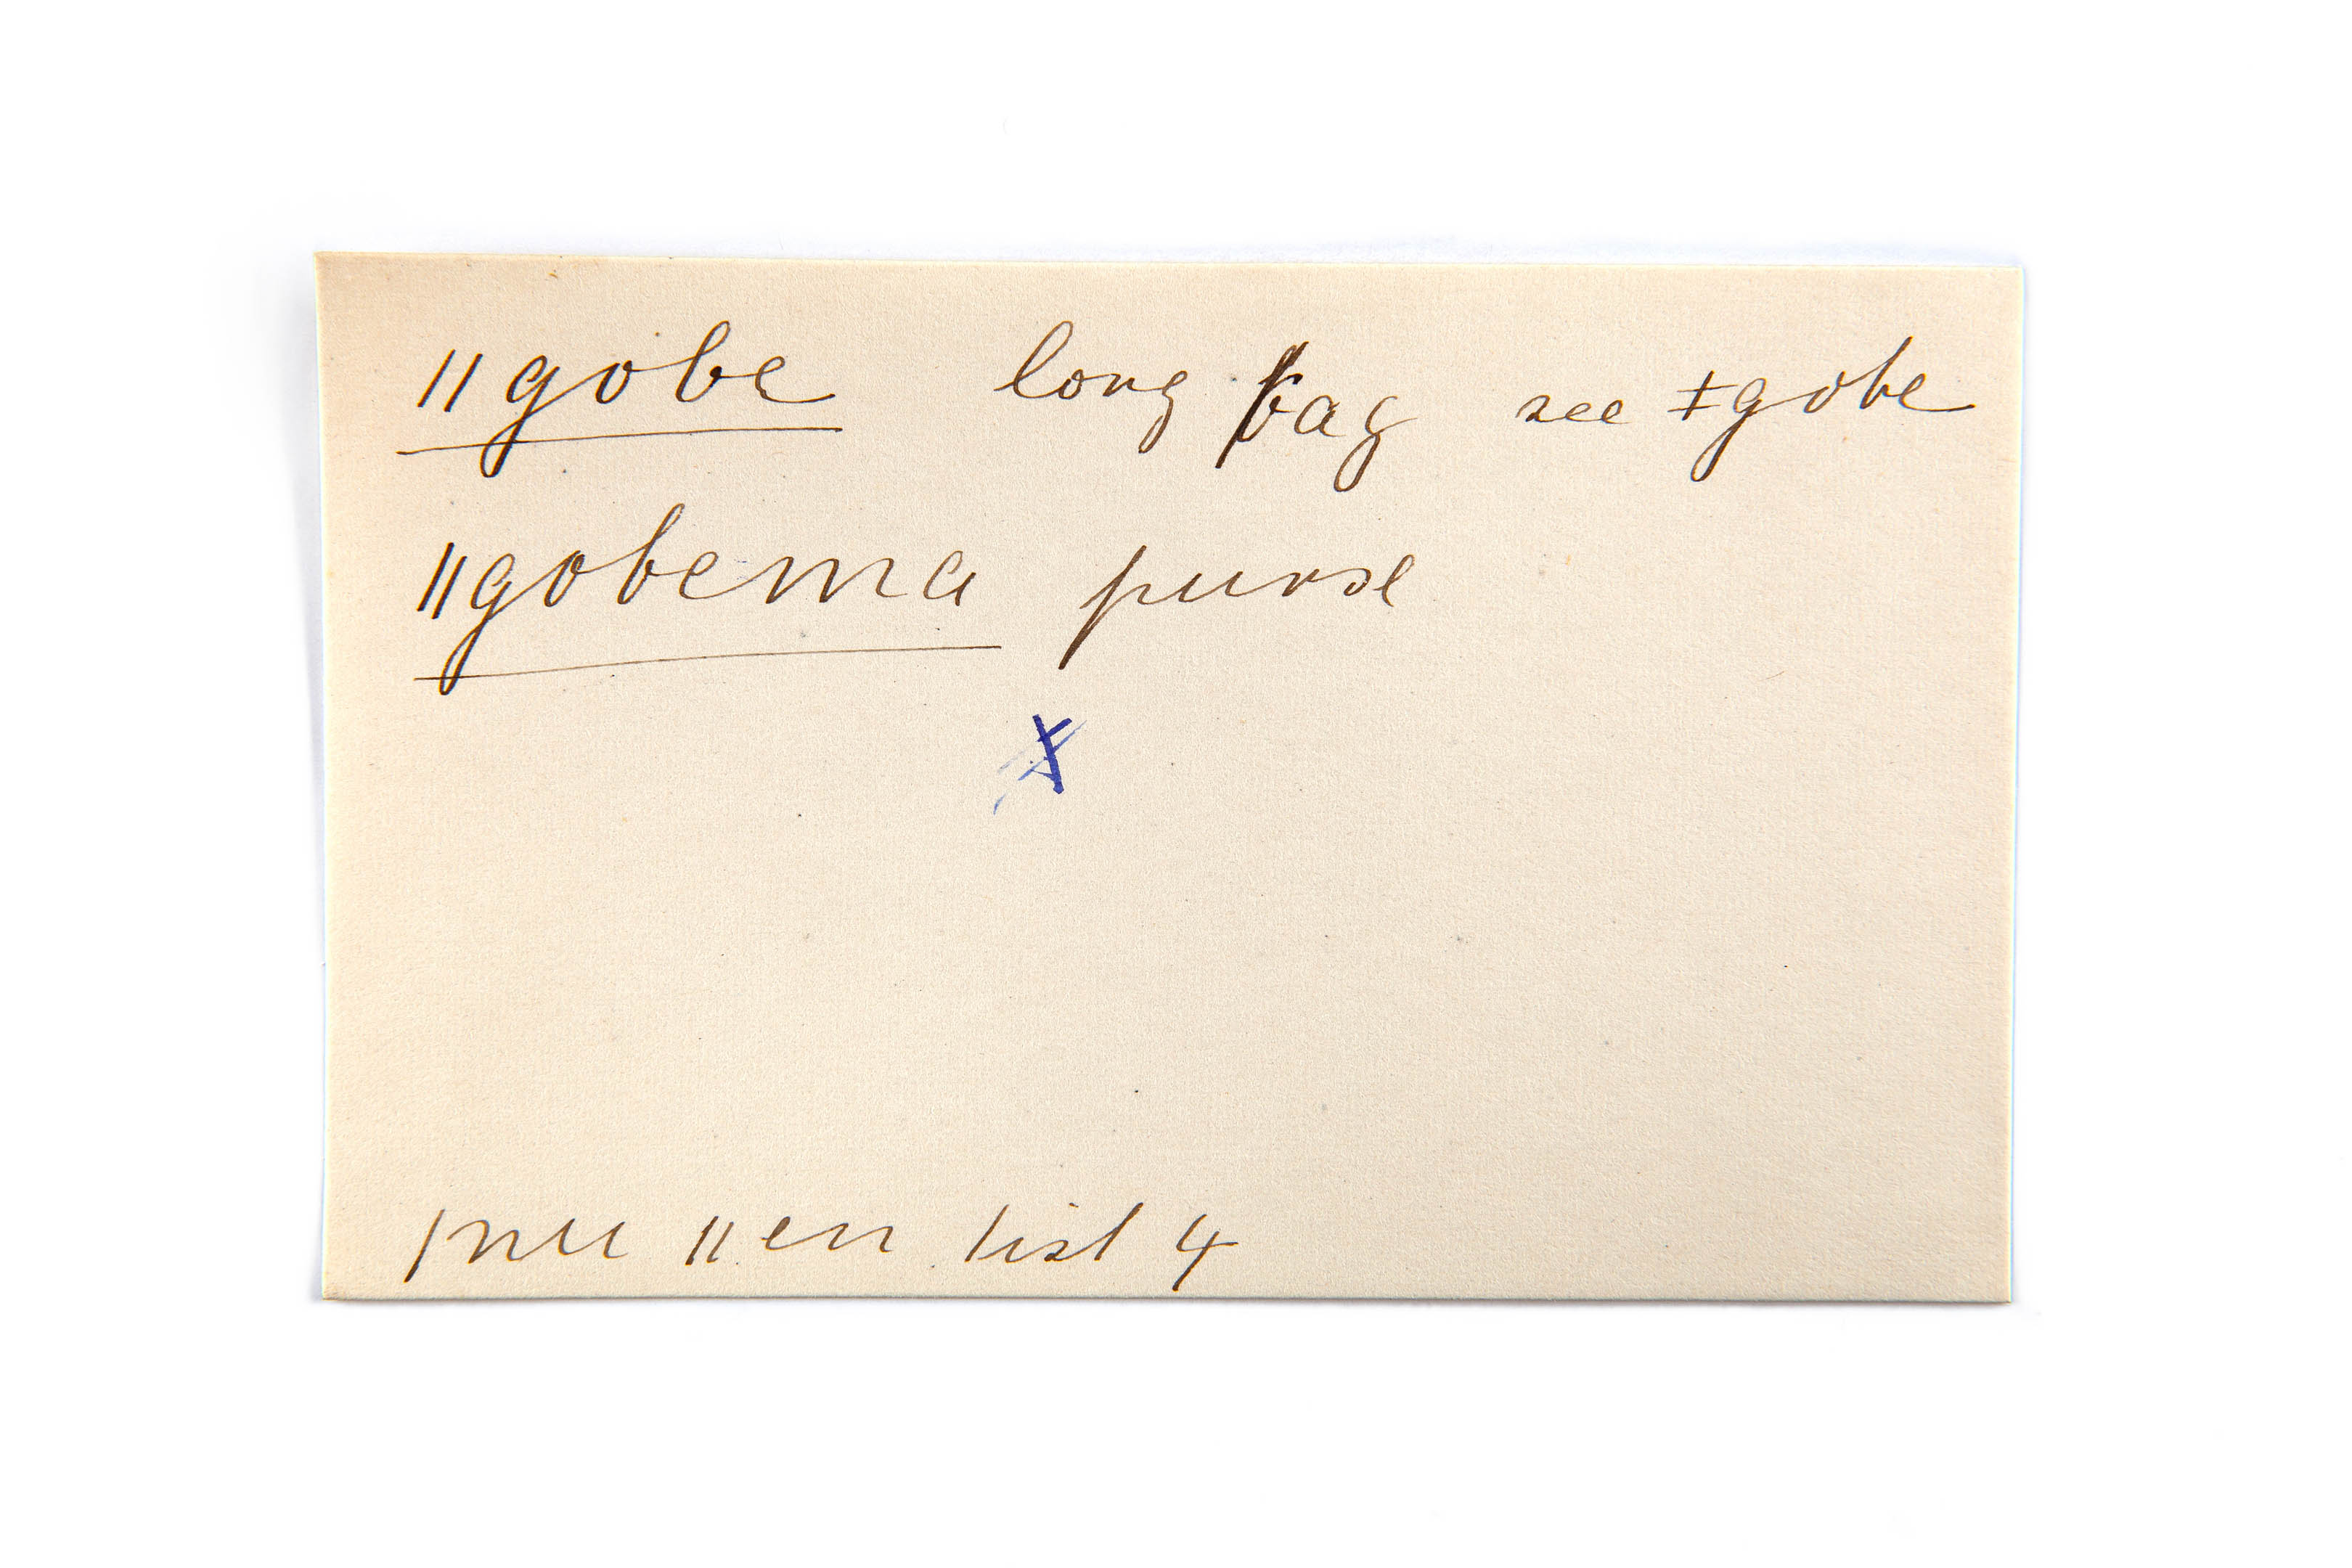 ǁgobe long bag see ǂgobe
ǁgobema purse
x
ǀnu ǁen list 4